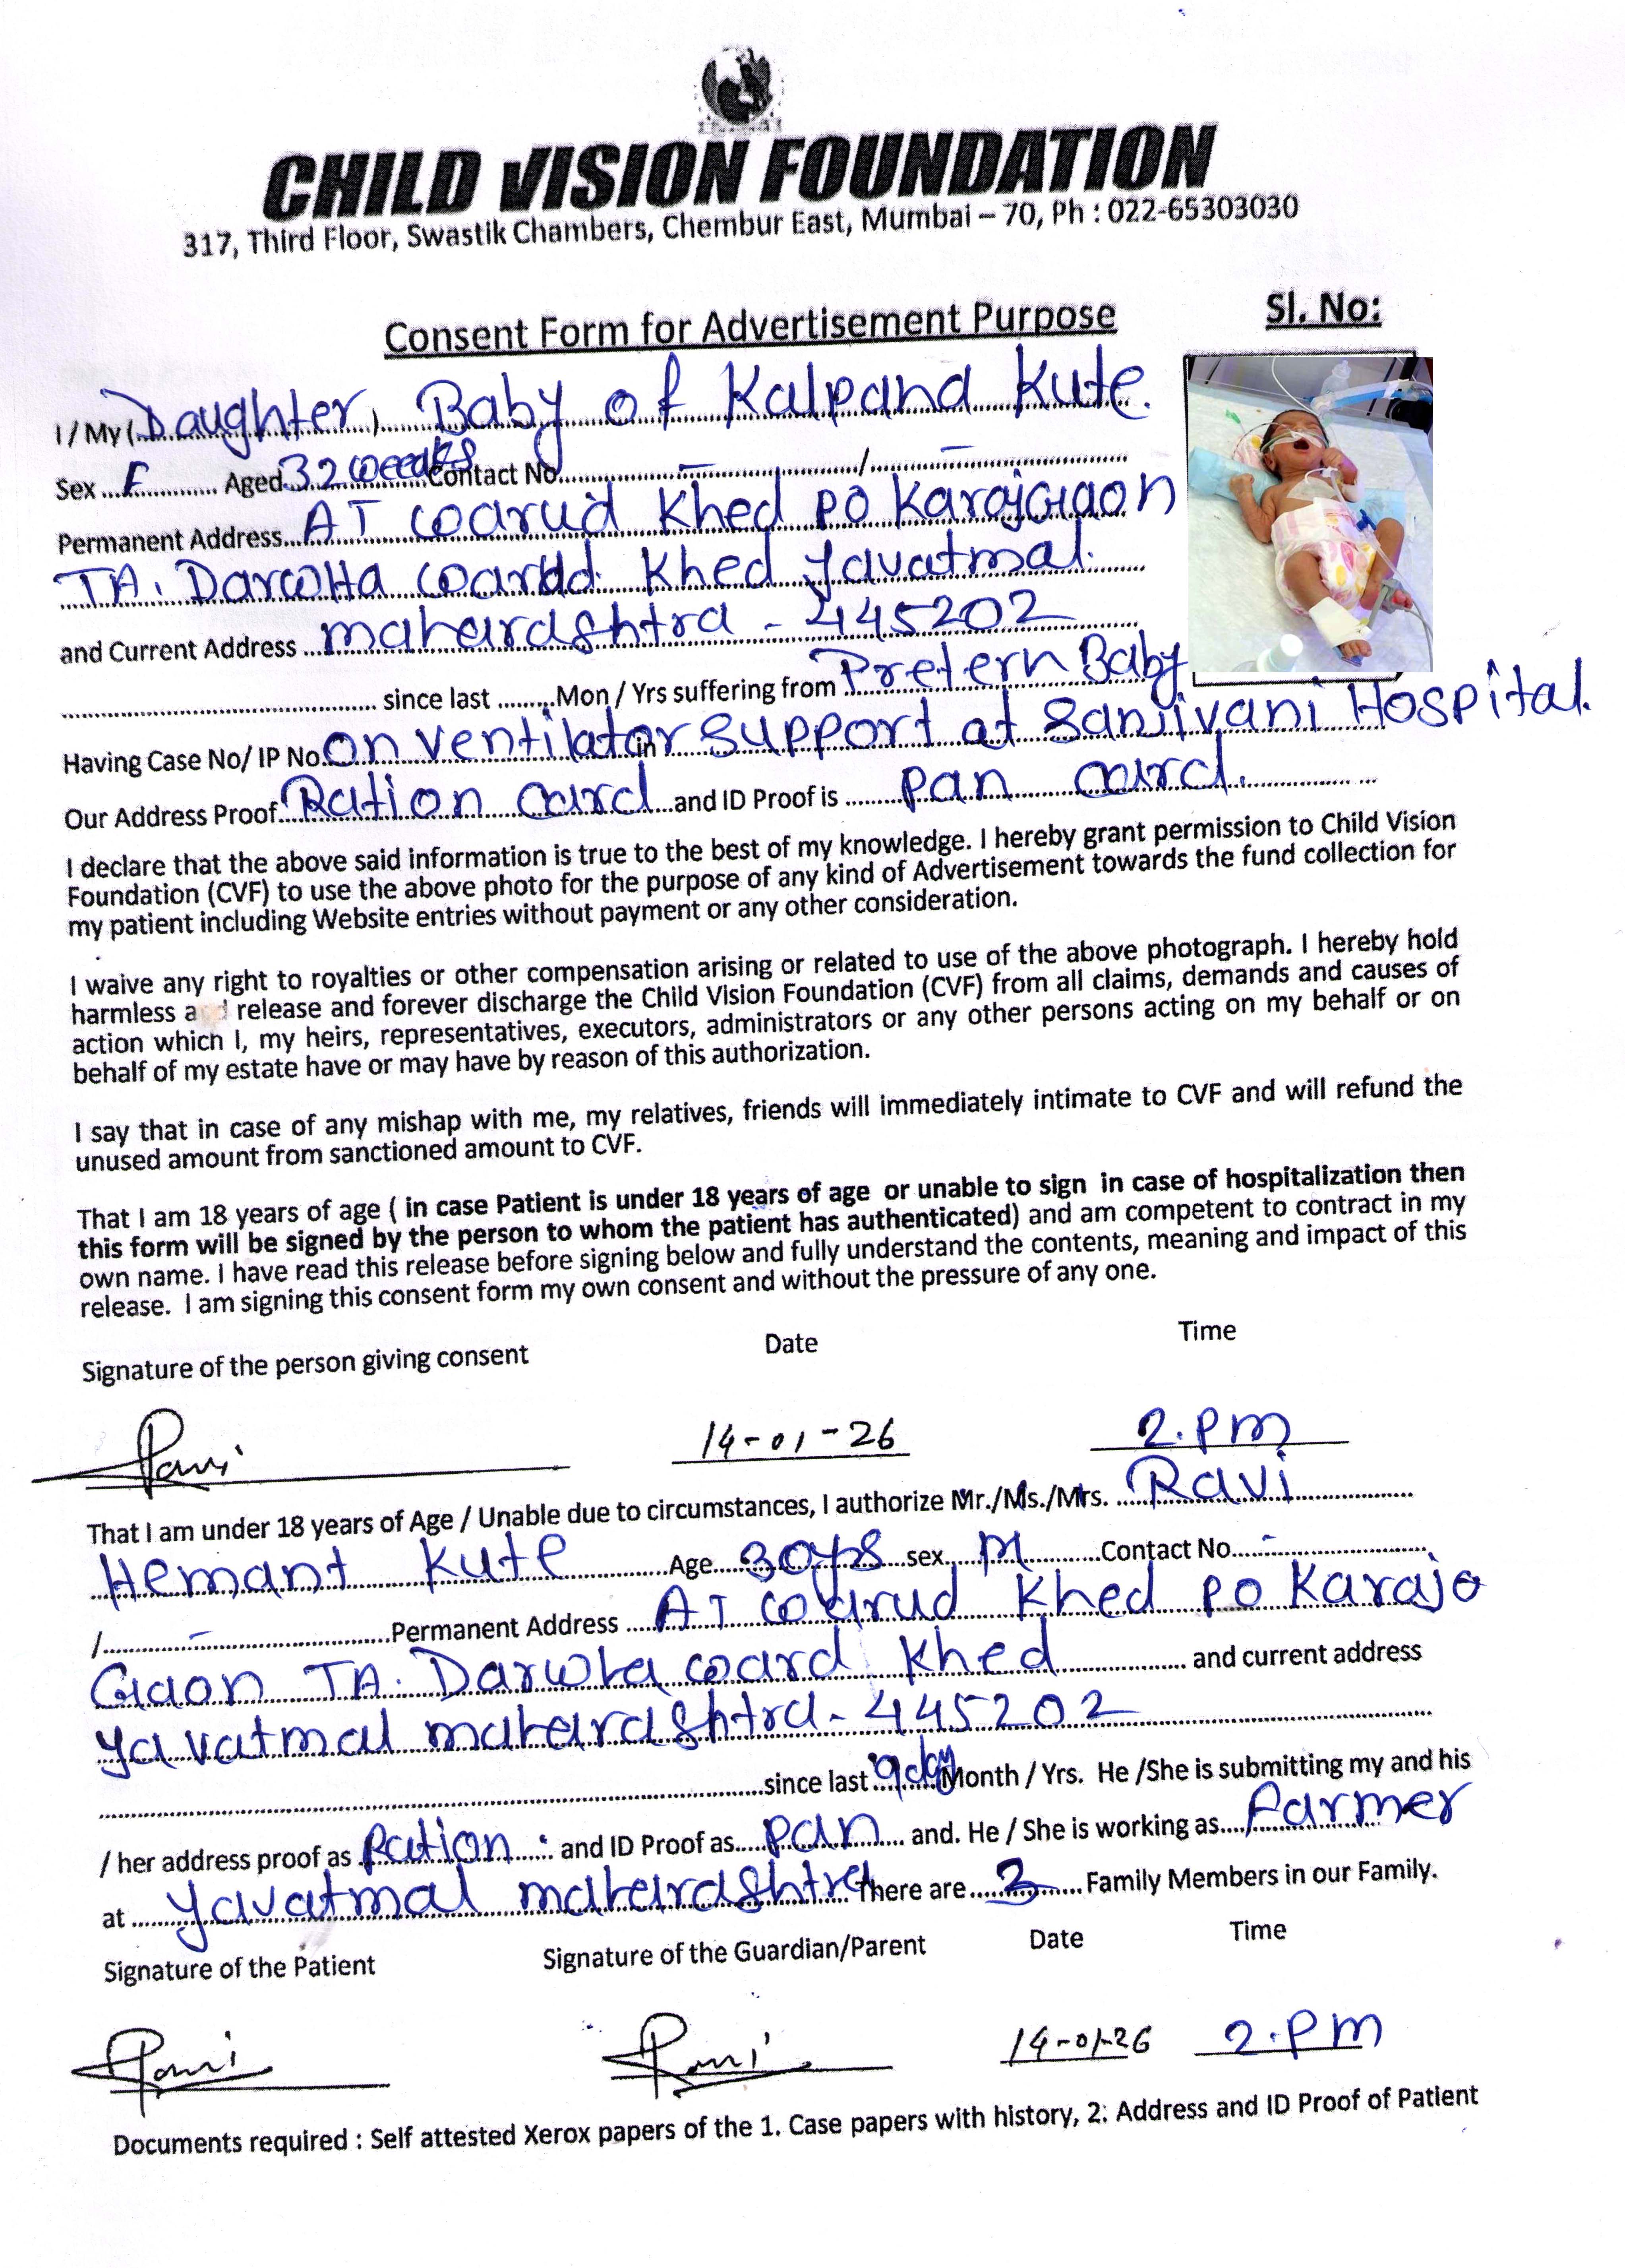 CHILD VISION FOUNDATION
317, Third Floor, Swastik Chambers, Chembur East, Mumbai – 70, Ph : 022-65303030
Consent Form for Advertisement Purpose
Sl. No:
I / My (Daughter) Baby of Kalpana Kute.
Sex F Aged 32 weeks Contact No. – / –
Permanent Address AT warud Khed po KarajGaon
TA. DarwHa warud Khed Yavatmal.
and Current Address maharashtra - 445202
since last Mon / Yrs suffering from Pretern Baby
Having Case No/ IP No. on ventilator in support at Sanjivani Hospital.
Our Address Proof Ration card and ID Proof is pan card.
I declare that the above said information is true to the best of my knowledge. I hereby grant permission to Child Vision
Foundation (CVF) to use the above photo for the purpose of any kind of Advertisement towards the fund collection for
my patient including Website entries without payment or any other consideration.
I waive any right to royalties or other compensation arising or related to use of the above photograph. I hereby hold
harmless and release and forever discharge the Child Vision Foundation (CVF) from all claims, demands and causes of
action which I, my heirs, representatives, executors, administrators or any other persons acting on my behalf or on
behalf of my estate have or may have by reason of this authorization.
I say that in case of any mishap with me, my relatives, friends will immediately intimate to CVF and will refund the
unused amount from sanctioned amount to CVF.
That I am 18 years of age ( in case Patient is under 18 years of age or unable to sign in case of hospitalization then
this form will be signed by the person to whom the patient has authenticated) and am competent to contract in my
own name. I have read this release before signing below and fully understand the contents, meaning and impact of this
release. I am signing this consent form my own consent and without the pressure of any one.
Signature of the person giving consent Date Time
Ravi 14-01-26 2.pm
That I am under 18 years of Age / Unable due to circumstances, I authorize Mr./Ms./Mrs. Ravi
Hemant Kute Age 30yrs sex M Contact No. -
/ – Permanent Address AT warud Khed po Karaj
Gaon TA. Darwha ward Khed and current address
Yavatmal maharashtra - 445202
since last 9 day Month / Yrs. He /She is submitting my and his
/ her address proof as Ration : and ID Proof as pan and. He / She is working as Farmer
at Yavatmal maharashtra There are 3 Family Members in our Family.
Signature of the Patient Signature of the Guardian/Parent Date Time
Ravi Ravi 14-01-26 2.pm
Documents required : Self attested Xerox papers of the 1. Case papers with history, 2: Address and ID Proof of Patient